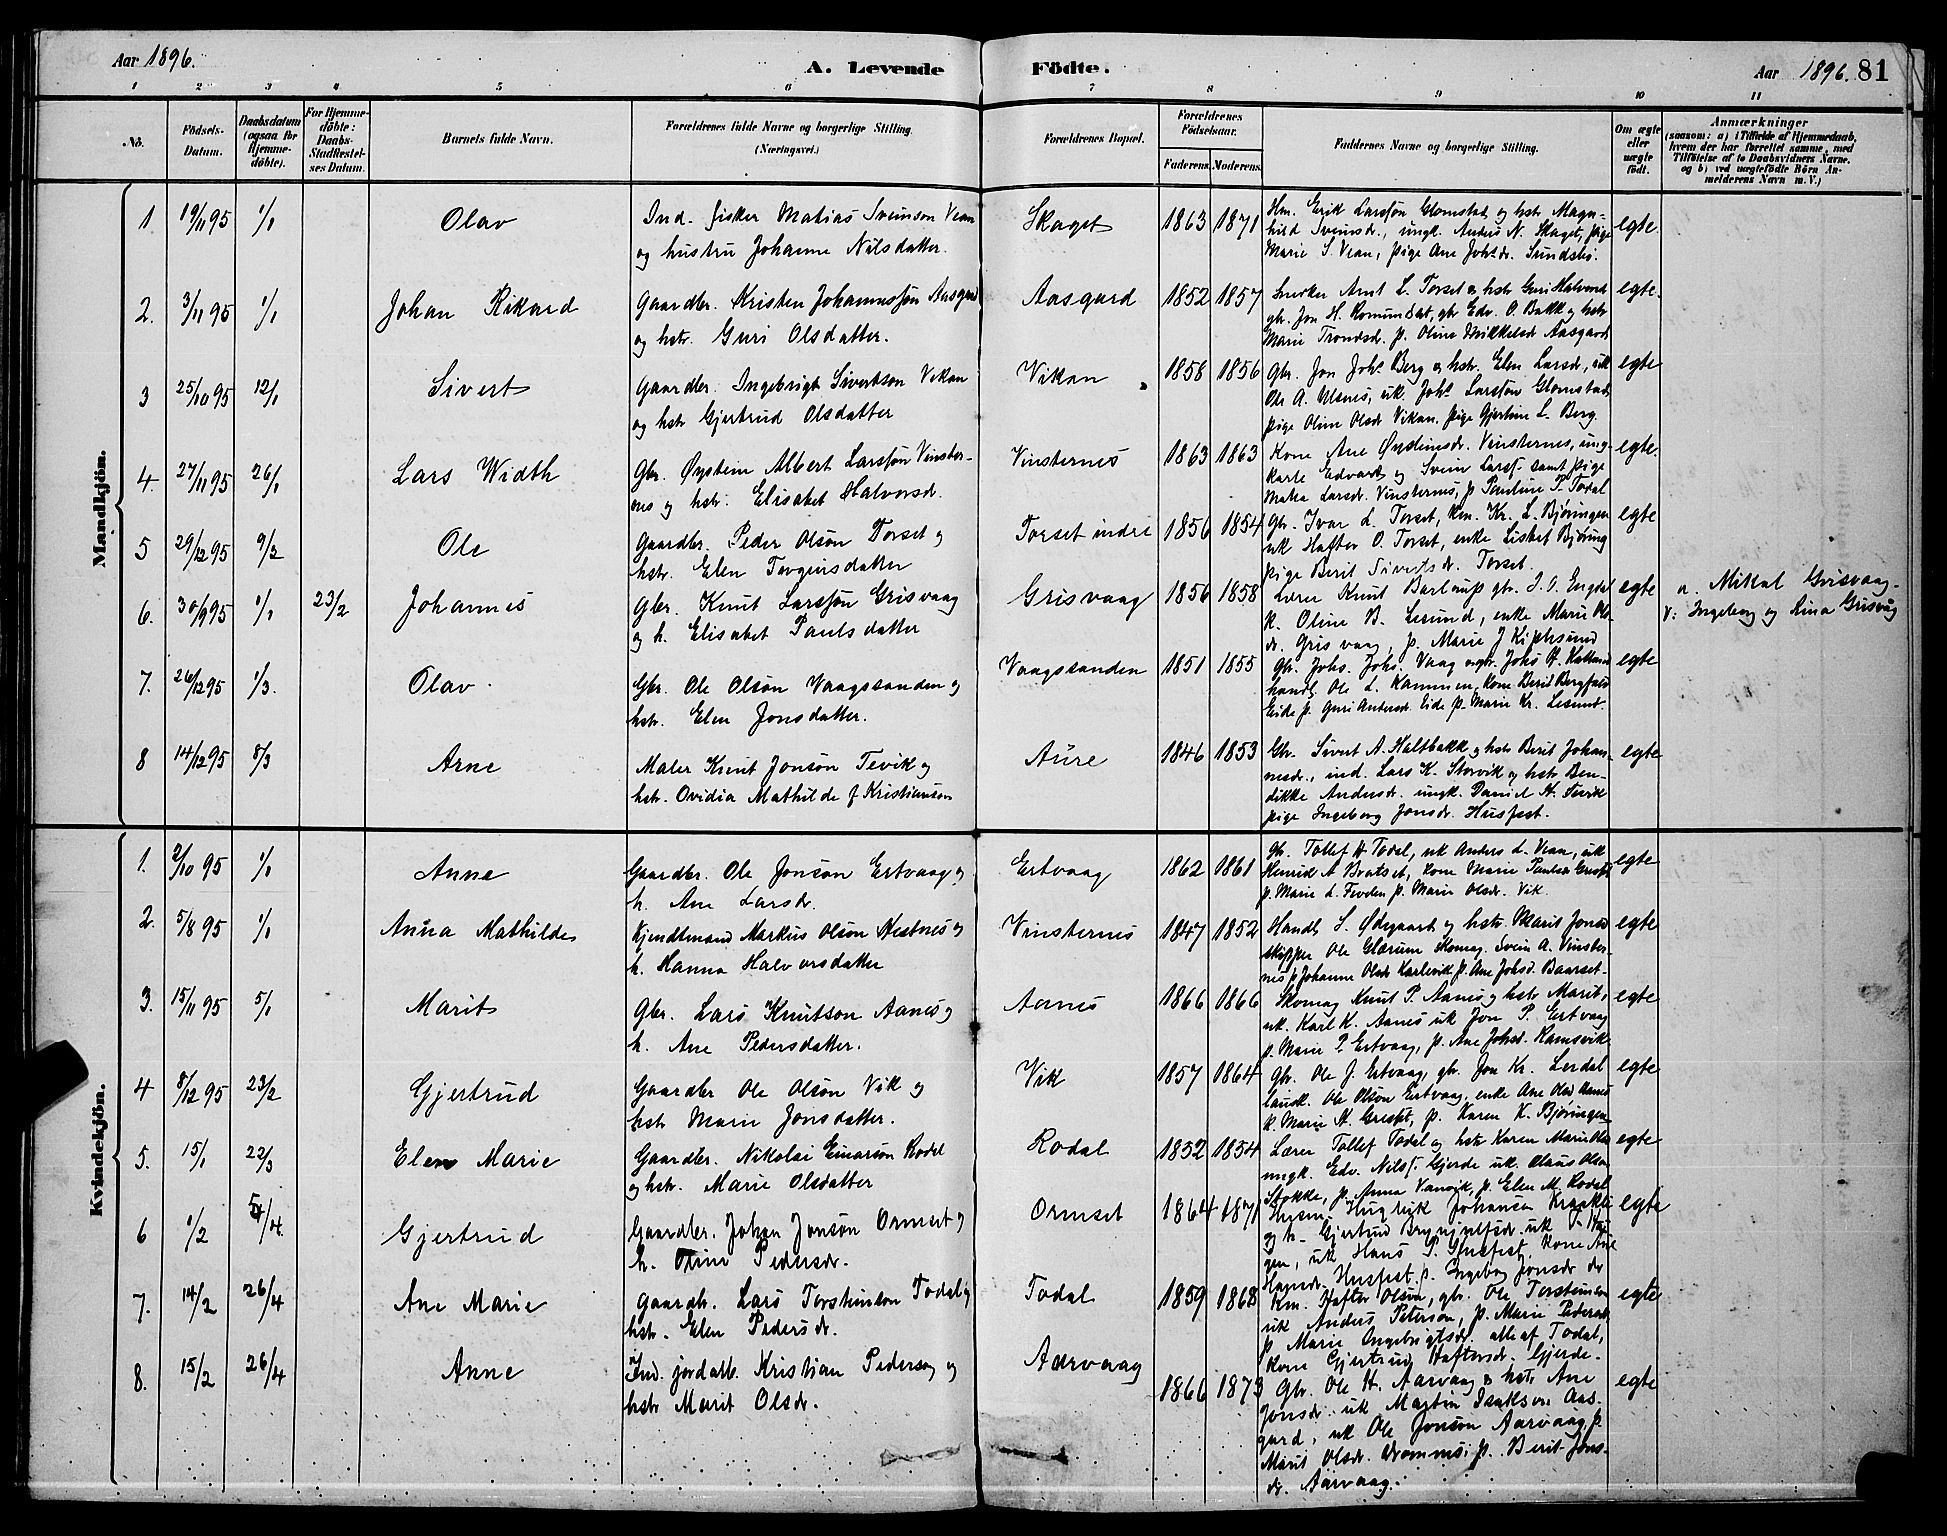 Aar 1896.
A. Levende Födte.
Aar 1896. 81
1 2 3 4 5 6 7 8 9 10 11
No.
Födsels-Datum.
Daabsdatum (ogsaa for Hjemme-döbte).
For Hjemme-döbte: Daabs-Stadfæstel-ses Datum.
Barnets fulde Navn.
Forældrenes fulde Navne og borgerlige Stilling.
(Næringsvei.)
Forældrenes Bopæl.
Forældrenes Födselsaar.
Faderens. Moderens.
Faddernes Navne og borgerlige Stilling.
Om ægte eller uægte födt.
Anmærkninger
(saasom: a) i Tilfælde af Hjemmedaab,
hvem der har forrettet samme, med
Tilföielse af to Daabsvidners Navne.
og b) ved uægtefödte Börn An-
melderens Navn m. V.)
Mandkjön.
1. 19/11 95 1/1 Olav
Ind. fisker Matias Sveinson Vean
og hustru Johanne Nilsdatter.
Skaget 1863 1871
Hm. Erik Larssøn Glomstad og hstr Magn-
hild Sveinsdr., ungk. Anders N. Skaget, pige
Marie S. Vean, pige Ane Johsdr. Sundsbø.
egte.
2. 3/11 95 1/1 Johan Rikard
Gaardbr. Kristen Johannessøn Aasgard
og hstr. Guri Olsdatter.
Aasgard 1852 1857
Snerker Arnt L. Torset og hstr Guri Halvorsd
gbr. Jon H. Romundset, gbr Edv. O. Bakk og hstr
Marie Trondsdr. p. Oline Mikkelsdr Aasgard
egte.
3 25/10 95 12/1 Sivert
Gaardbr. Ingebrigt Sivertson Vikan
og hstr Gjertrud Olsdatter
Vikan 1858 1856
Gbr. Jon Johs Berg og hstr. Elen Larsdr, uk
Ole A. Ulsnes, uk. Johs Larssøn Glomstad
pige Oline Olsdr Vikan. pige Gjertine L. Berg.
egte
4. 27/11 95 26/1 Lars Width
Gbr. Øystein Albert Larssøn Vinster-
nes og hstr. Elisabet Halvorsdr.
Vinsternes 1863 1863
Kone Ane Øysteinsdr. Vinsternes, ung-
karle Edvard og Svein Larss. samt pige
Larsdr. Vinsternes, p Pauline P. Todal
egte.
5 29/12 95 9/2 Ole
Gaardbr. Peder Olsøn Torset og
hstr. Elen Torgersdatter
Torset indre 1856 1854
Gbr. Ivar L. Torset, km. Kr. L. Bjøringen
uk Hafter O. Torset, enke Lisbet Bjøring
pige Berit Sivertsdr. Torset.
egte
6. 30/9 95 1/1 23/2 Johannes
Gbr. Knut Larssøn Grisvaag
og h. Elisabet Paulsdatter
Grisvaag 1856 1858
Lærer Knut gbr. J. O. Engdal
k. Oline B. Lesund, enke Marie Ols-
dr. Grisvaag, p. Marie J
egte
a. Mikal Grisvaag.
V: Ingeborg og Lina Grisvåg
7. 26/12 95 1/3. Olav.
Gbr. Ole Olsøn Vaagssanden og
hstr. Elen Jonsdatter.
Vaagssanden 1851 1855
Gbr. Johs. Johs. Vaag
handl Ole L. Hammen, kone Berit
Eide p. Guri Andersdr. Eide p. Marie Kr. Lesund.
egte
8 14/12 95 8/3 Arne
Maler Knut Jonsøn Tevik og
hstr. Ovidia Mathilde f Kristiansen
Aure 1846 1853
Gbr. Sivert A. Haltbakk og hstr Berit Johan-
nesdr., ind. Lars K. Storvik og hstr Ben-
dikke Andersdr. ungk. Daniel H. Tevik
pige Ingeborg Jonsdr. Husfest.
egte
Kvindekjön.
1. 2/10 95 1/1 Anne
Gaardbr. Ole Jonsøn Ertvaag og
h. Ane Larsdr.
Ertvaag 1862 1861
gb. Tollef H Todal, uk Anders L. Vean, uk
Henrik A Bratset, kone Marie
p. Marie L. p. Marie Olsdr. Vik.
egte
2. 5/8 95 1/1 Anna Mathilde
Kjendtmand Markus Olsøn Nestnes og
h. Hanna Halvorsdatter
Vinsternes 1847 1852
Handl S. Ødegaard og hstr. Marit Jonsd
skipper Ole Glærum Skomag. Svein A. Vinster-
nes p Johanne Olsdr Karlsvik p. Ane Johsd. Baarset.
egte
3. 15/11 95 5/1 Marit
Gbr. Lars Knutson Aanes og
h. Ane Pedersdatter.
Aanes 1866 1866
Skomag Knut P. Aanes og hstr Marit,
uk. Karl K. Aanes uk Jon P. Ertvaag
p. Marie P. Ertvaag, p. Ane Johsd. Ramsvik
egte
4 8/12 95 23/2 Gjertrud
Gaardbr Ole Olsøn Vik og
hstr Marie Jonsdatter.
Vik 1857 1864
Gbr. Ole J. Ertvaag, gbr. Jon Kr. Lerdal
Ole Olsøn Ertvaag, enke Ane Olsd Aanes
k. Marie H. p. Karen K. Bjøringen
egte
5. 15/1 22/3 Elen Marie
Gaardbr. Nikolai Einarsøn Rodal
og hstr. Marie Olsdatter
Rodal 1852 1854
Lærer Tollef Todal og hstr Karen Marie
ungk. Edv. Nilsf. Gjerde uk. Claus Olson
Stokke, p. Anna Vaasvik, p. Elen M. Rodal
egte
6 1/2 5/4 Gjertrud
Gaardbr. Johan Jonsøn Ormset og
h. Oline Pedersdr.
Ormset 1864 1871
Johansen
og h. Gjertrud Brynjulfsdr. uk
gen, uk Hans S. Husfest, kone Ane
Hansdr. Husfest p. Ingebog Jonsdr do
egte
7. 14/2 26/4 Ane Marie
Gaardb. Lars Torsteinson Todal og
hstr. Elen Pedersdr.
Todal 1859 1868
Km. Hafter Olsøn, gbr. Ole Torsteinson
uk Anders Peterson, p. Marie Pedersdr
p Marie Ingebrigtsdr. alle af Todal,
kone Gjertrud Haftersdr. Gjerde.
egte
8. 15/2 26/4 Anne
Ind. jordarb. Kristian Pedersøn og
hstr Marit Olsdr.
Aarvaag 1866 1873
Gbr. Ole H. Aarvaag og hstr Ane
Jonsdr. uk Martin Isakson Aas-
gard, uk Ole Jonsøn Aarvaag, p.
Marit Olsdr. Dromnes, p. Berit Jons-
dr. Aarvaag.
egte